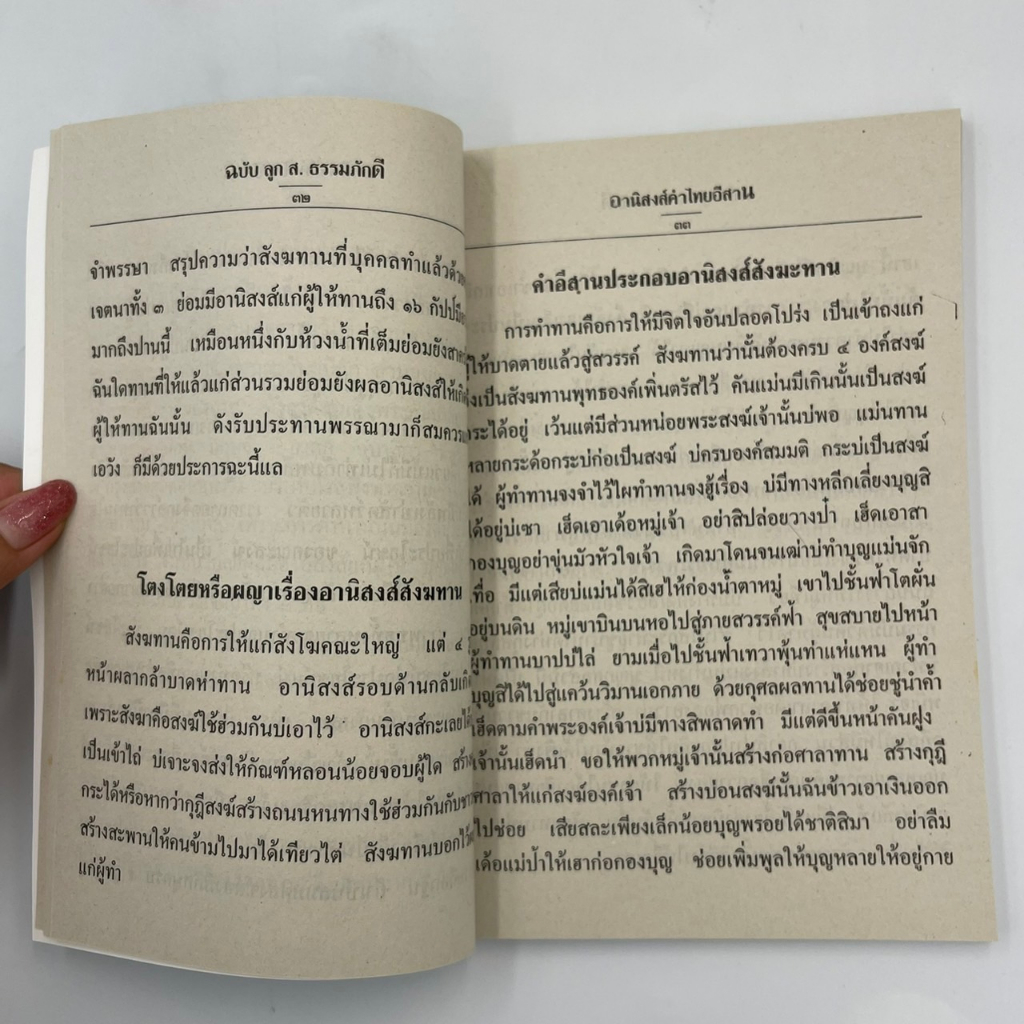 ฉบับ ลูก ส. ธรรมภักดี
๓๒
จำพรรษา สรุปความว่าสังฆทานที่บุคคลทำแล้วด้วย
เจตนาทั้ง ๓ ย่อมมีอานิสงส์แก่ผู้ให้ทานถึง ๑๖ กัปป์
มากถึงปานนี้ เหมือนหนึ่งกับห้วงน้ำที่เต็มย่อมยัง
ฉันใดทานที่ให้แล้วแก่ส่วนรวมย่อมยังผลอานิสงส์ให้
ผู้ให้ทานฉันนั้น ดังรับประทานพรรณามาก็สมควร
เอวัง ก็มีด้วยประการฉะนี้แล
โตงโตยหรือผญาเรื่องอานิสงส์สังฆทาน
สังฆทานคือการให้แก่สังโฆคณะใหญ่ แต่ ๔
หน้าผลากล้าบาดห่าทาน อานิสงส์รอบด้านกลับ
เพราะสังฆาคือสงฆ์ใช้ฮ่วมกันบ่เอาไว้ อานิสงส์กะเลย
เป็นเข้าไถ่ บ่เจาะจงส่งให้กัณฑ์หลอนน้อยจอบผู้ใด
กระได้หรือหากว่ากุฎีสงฆ์สร้างถนนหนทางใช้ฮ่วมกันกับ
สร้างสะพานให้คนข้ามไปมาได้เทียวไต่ สังฆทานบอกไว้
แก่ผู้ทำ
อานิสงส์คำไทยอีสาน
๓๓
คำอีสานประกอบอานิสงส์สังฆะทาน
การทำทานคือการให้มีจิตใจอันปลอดโปร่ง เป็นเข้าถงแก่
ผู้ให้บาดตายแล้วสู่สวรรค์ สังฆทานว่านั้นต้องครบ ๔ องค์สงฆ์
จึงเป็นสังฆทานพุทธองค์เพิ่นตรัสไว้ คันแม่นมีเกินนั้นเป็นสงฆ์
กระได้อยู่ เว้นแต่มีส่วนหน่อยพระสงฆ์เจ้านั้นบ่พอ แม่นทาน
หลายกระด้อกระบ่ก่อเป็นสงฆ์ บ่ครบองค์สมมติ กระบ่เป็นสงฆ์
ได้ ผู้ทำทานจงจำไว้ไผทำทานจงฮู้เรื่อง บ่มีทางหลีกเลี่ยงบุญสิ
ได้อยู่บ่เซา เฮ็ดเอาเด้อหมู่เจ้า อย่าสิปล่อยวางป๋า เฮ็ดเอาสา
กองบุญอย่าขุ่นมัวหัวใจเจ้า เกิดมาโดนจนเฒ่าบ่ทำบุญแม่นจัก
เทื่อ มีแต่เสียบ่แม่นได้สิเฮให้ก่องน้ำตาหมู่ เขาไปชั้นฟ้าโตผั่น
อยู่บนดิน หมู่เขาบินบนหอไปสู่ภายสวรรค์ฟ้า สุขสบายไปหน้า
ผู้ทำทานบาปบ่ไล่ ยามเมื่อไปชั้นฟ้าเทวาพุ้นทำแห่แหน ผู้ทำ
บุญสิได้ไปสู่แคว้นวิมานเอกภาย ด้วยกุศลผลทานได้ช่อยชู่นำค้ำ
เฮ็ดตามคำพระองค์เจ้าบ่มีทางสิพลาดทำ มีแต่ดีขึ้นหน้าคันฝูง
เจ้านั้นเฮ็ดนำ ขอให้พวกหมู่เจ้านั้นสร้างก่อศาลาทาน สร้างกุฎี
ศาลาให้แก่สงฆ์องค์เจ้า สร้างบ่อนสงฆ์นั้นฉันข้าวเอาเงินออก
ไปช่อย เสียสละเพียงเล็กน้อยบุญพรอยได้ชาติสิมา อย่าลืม
เด้อแม่ป้าให้เฮาก่อกองบุญ ช่อยเพิ่มพูลให้บุญหลายให้อยู่กาย